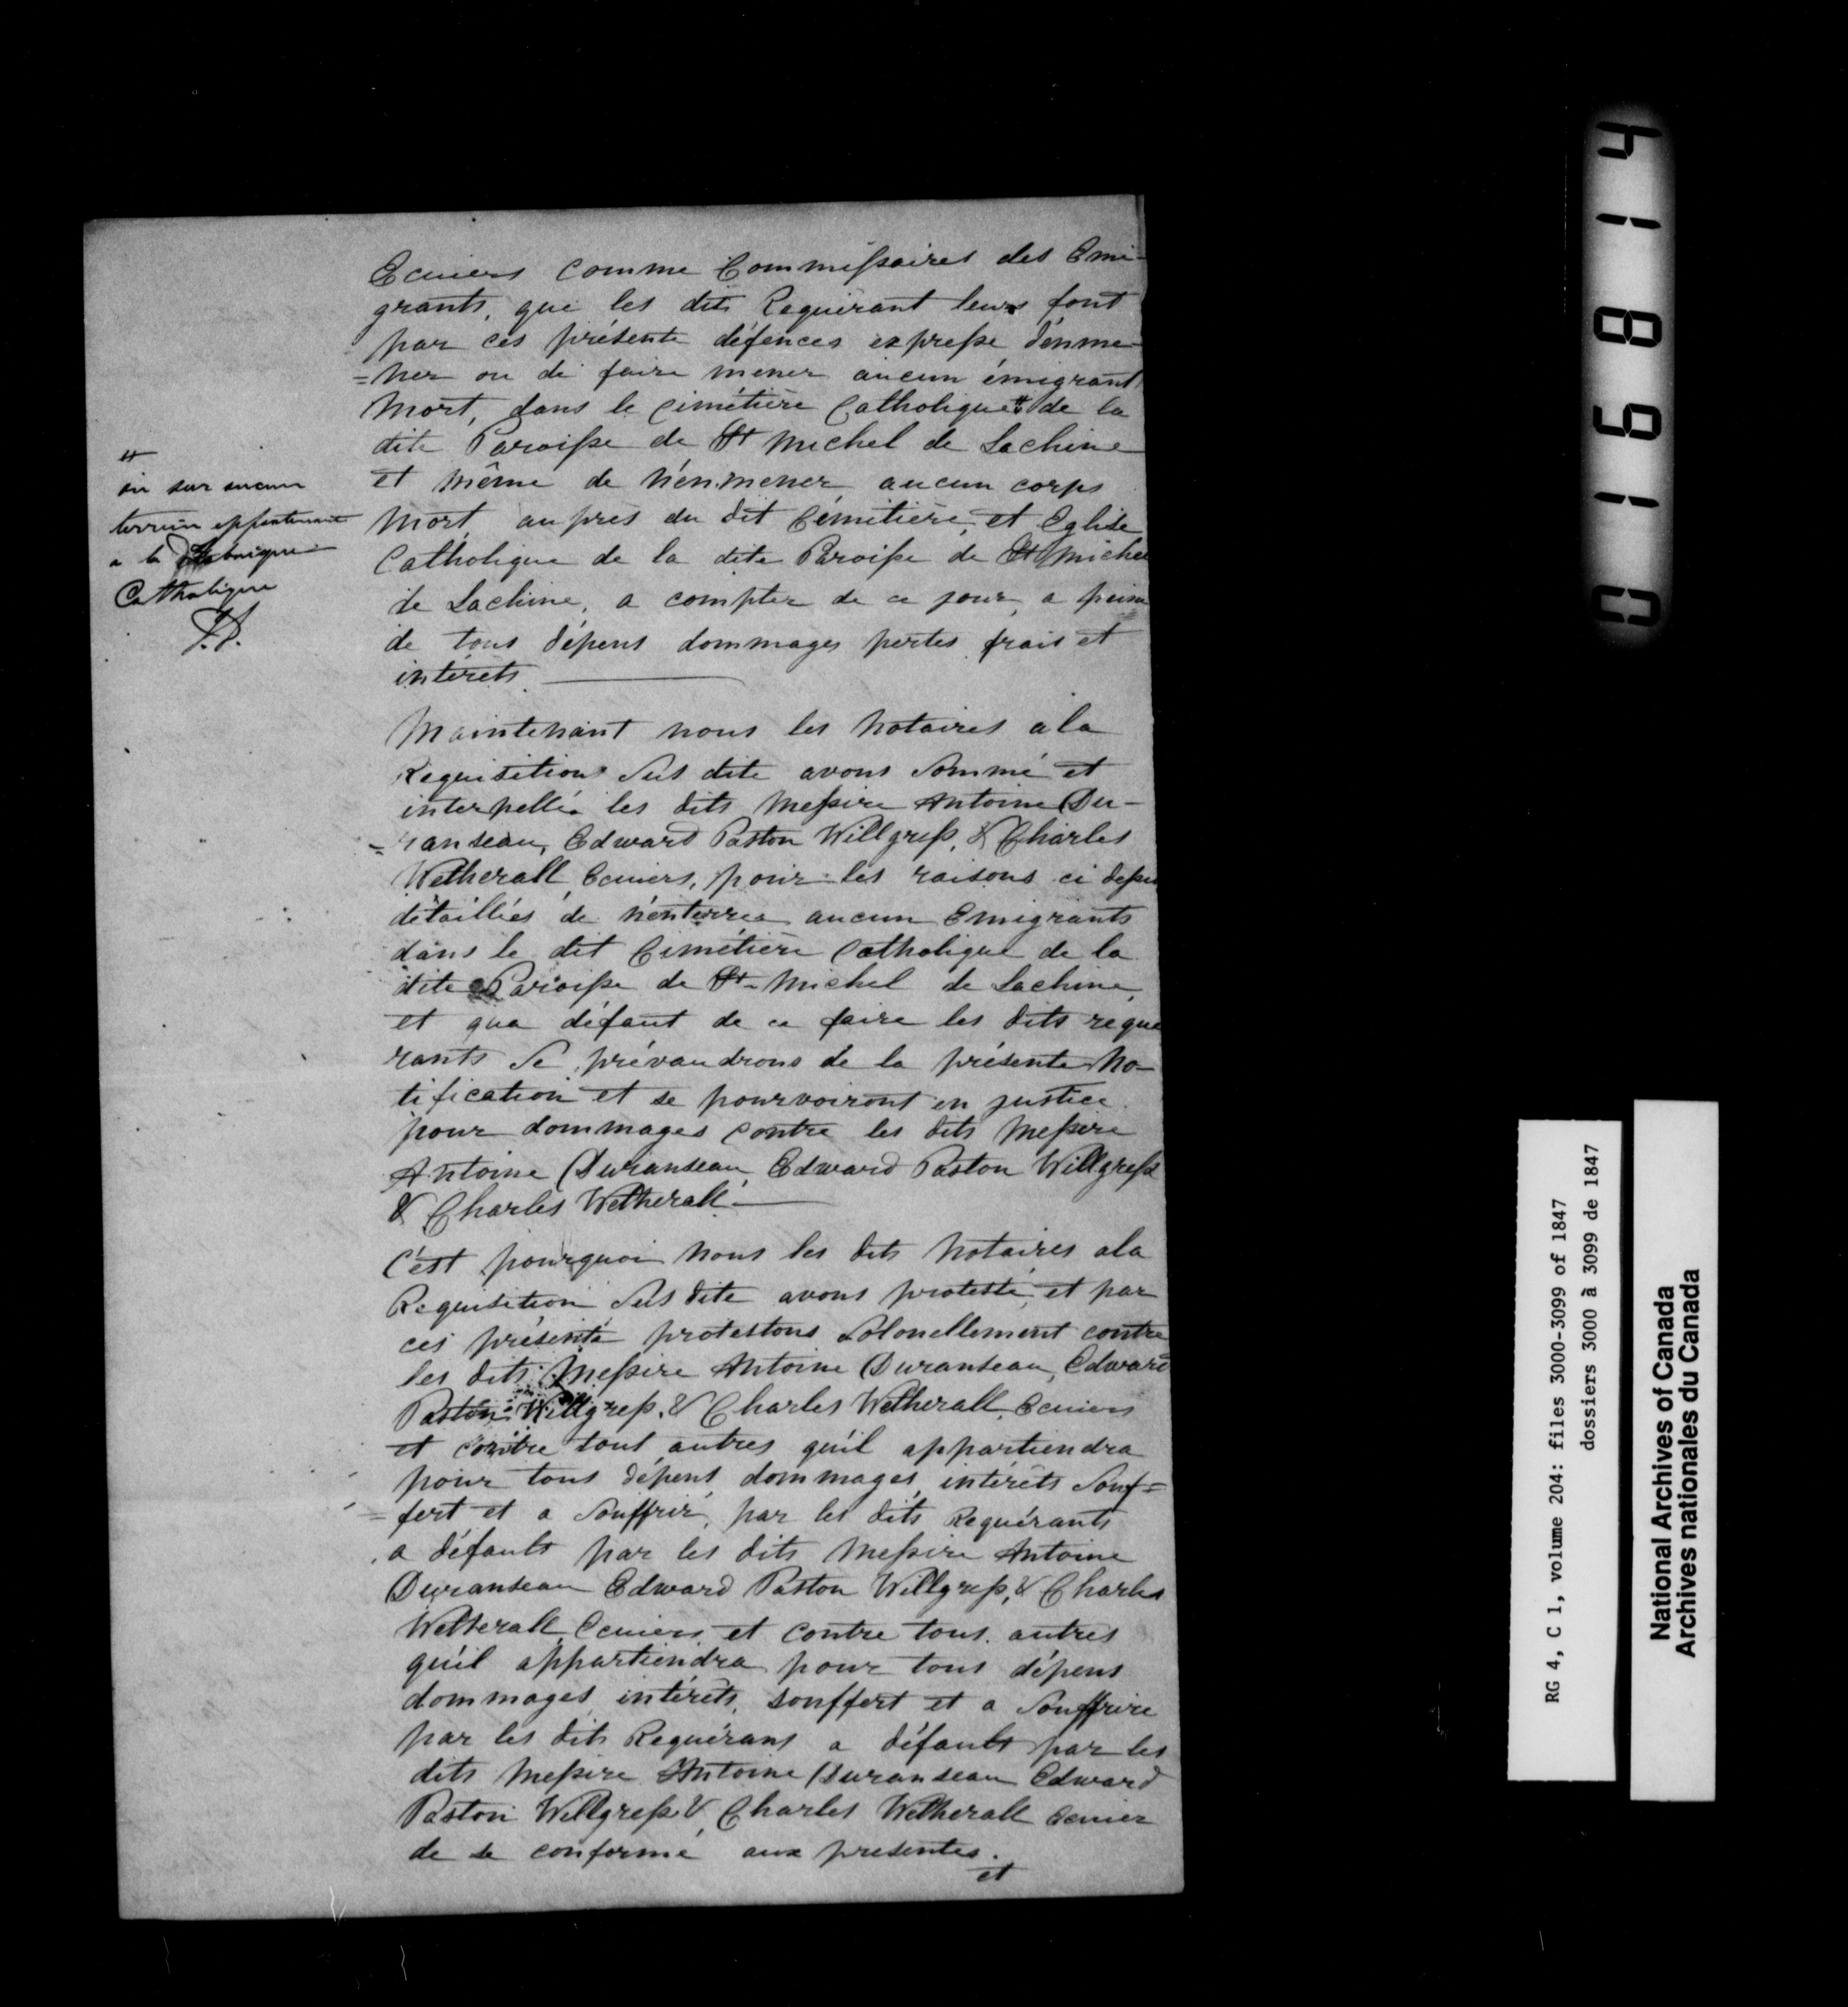 Ecuiers comme Commissaires des Emi-
grants, que les dits Requérant leurs font
par ces présente défences expresse d'enme-
=ner ou de faire mener aucun émigrant
mort, dans le cimétière Catholique # de la
dite Paroisse de St Michel de Lachine
et même de n'enmener aucun corps
mort aupres du dit Cémitière, et Eglise
Catholique de la dite Paroisse de St Michel
de Lachine, a compter de ce jour, a peine
de tous dépens dommages pertes frais et
intérets
#
ou sur aucun
terrein appartenant
a la Fabrique
Catholique
Maintenant nous les Notaires a la
Requisition sus dite avons sommé et
interpellé les dits Messire Antoine Du-
=ranseau, Edward Paston Willgress, & Charles
Wetherall Ecuiers, pour les raisons ci dessu
détaillées de n'enterrer aucun Emigrants
dans le dit Cimétière Catholique de la
dite Paroisse de St Michel de Lachine,
et qua défaut de ce faire les dits reque
rants se prévaudrons de la présente No-
tification et se pourvoiront en justice
pour dommages contre les dits Messire
Antoine Duranseau, Edward Paston Willgress
& Charles Wetherall
C'est pourquoi nous les dits Notaires a la
Requisition sus dite avons protesté, et par
ces présente protestons solonellement contre
les dits Messire Antoine Duranseau, Edward
Paston Willgress, & Charles Wetherall, Ecuiers
et contre tout autres qu'il appartiendra
pour tous dépens, dommages, intérêts souf=
=fert et a souffrir, par les dits Requérants
a défauts par les dits Messire Antoine
Duranseau Edward Paston Willgress, & Charles
Wetherall, Ecuiers, et contre tous autres
qu'il appartiendra pour tous dépens
dommages, intérêts, souffert et a souffrire
par les dits Requérans a défauts par les
dits Messire Antoine Duranseau Edward
Paston Willgress & Charles Wetherall Ecuier
de se conformé aux présentes.
et
016814
RG 4, C 1, volume 204: files 3000-3099 of 1847
dossiers 3000 à 3099 de 1847
National Archives of Canada
Archives nationales du Canada